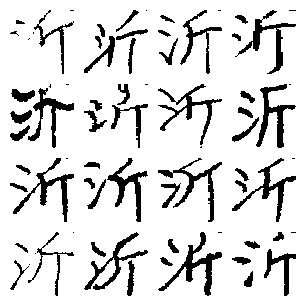 沂沂沂沂
沂沂沂沂
沂沂沂沂
沂沂沂沂